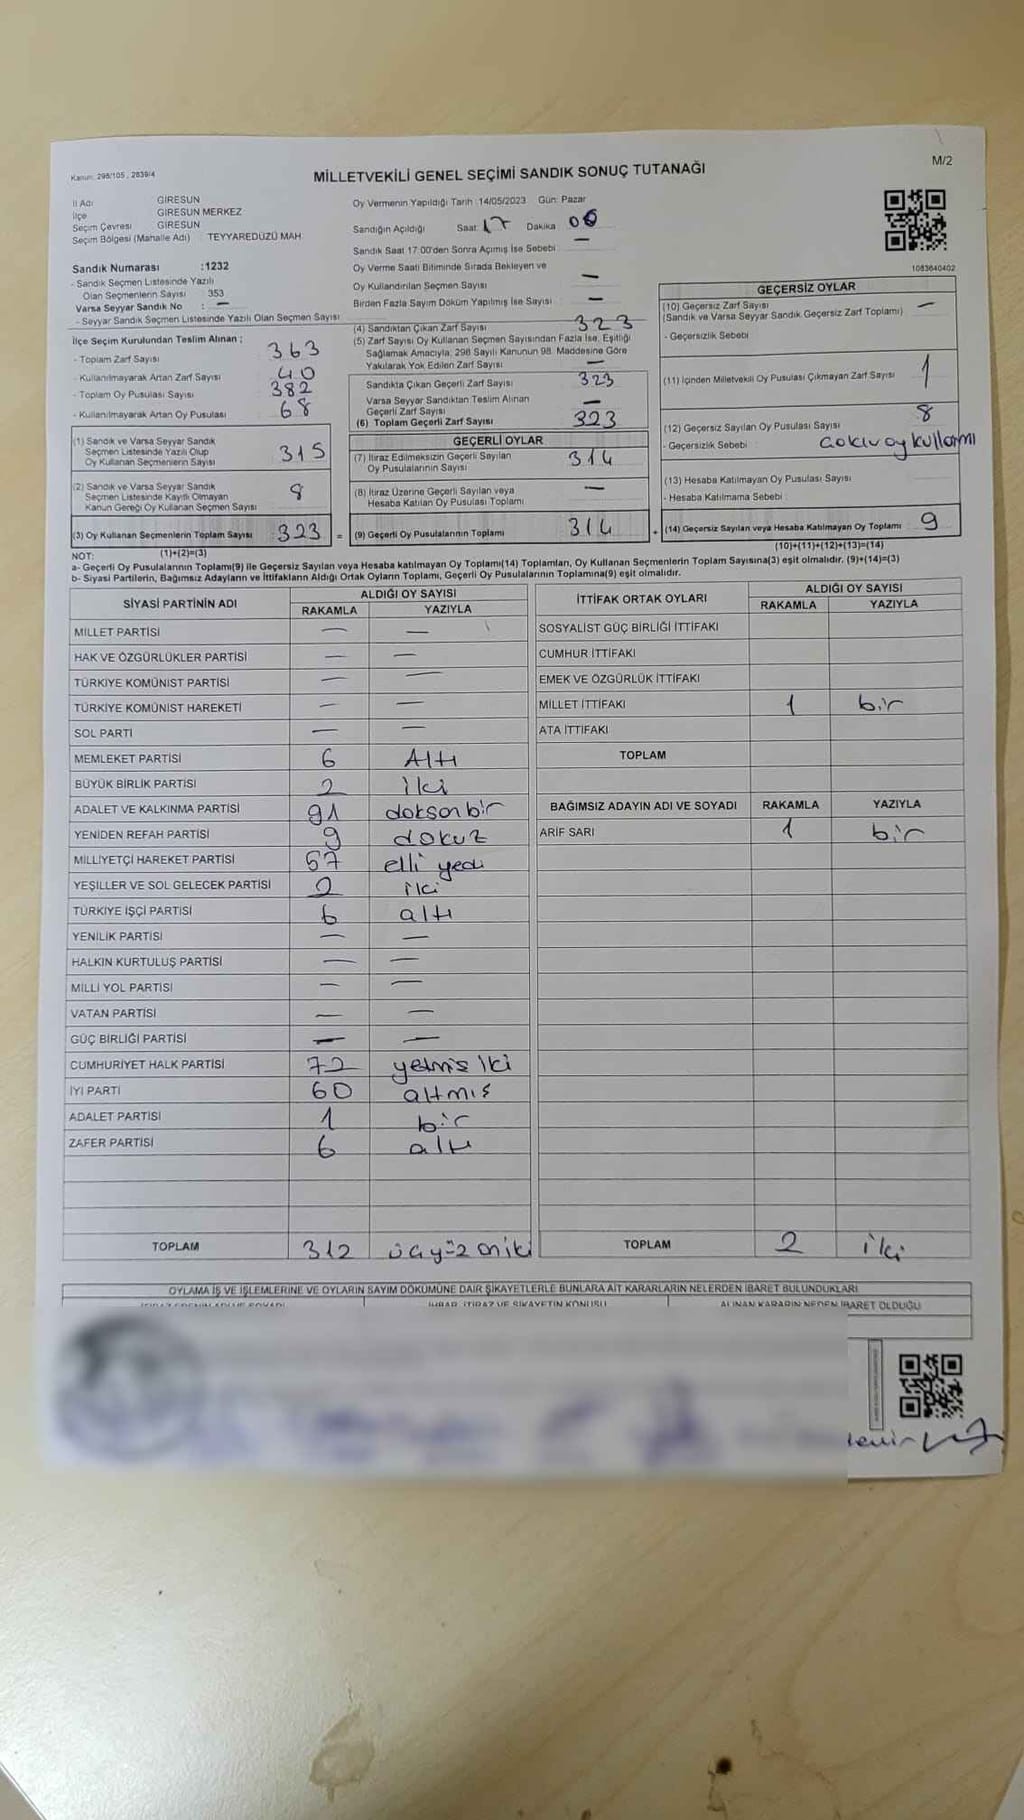 Kanun: 298/105 , 2839/4
MİLLETVEKİLİ GENEL SEÇİMİ SANDIK SONUÇ TUTANAĞI
M/2
İl Adı GİRESUN
İlçe GİRESUN MERKEZ
Seçim Çevresi GİRESUN
Seçim Bölgesi (Mahalle Adı) : TEYYAREDÜZÜ MAH.
Sandık Numarası :1232
- Sandık Seçmen Listesinde Yazılı
Olan Seçmenlerin Sayısı 353
Varsa Seyyar Sandık No : —
- Seyyar Sandık Seçmen Listesinde Yazılı Olan Seçmen Sayısı
Oy Vermenin Yapıldığı Tarih :14/05/2023 Gün: Pazar
Sandığın Açıldığı Saat 17 Dakika 06
Sandık Saat 17:00'den Sonra Açımış İse Sebebi —
Oy Verme Saati Bitiminde Sırada Bekleyen ve
Oy Kullandırılan Seçmen Sayısı —
Birden Fazla Sayım Döküm Yapılmış İse Sayısı —
1083640402
İlçe Seçim Kurulundan Teslim Alınan ;
- Toplam Zarf Sayısı 363
- Kullanılmayarak Artan Zarf Sayısı 40
- Toplam Oy Pusulası Sayısı 382
- Kullanılmayarak Artan Oy Pusulası 68
(1) Sandık ve Varsa Seyyar Sandık
Seçmen Listesinde Yazılı Olup
Oy Kullanan Seçmenlerin Sayısı 315
(2) Sandık ve Varsa Seyyar Sandık
Seçmen Listesinde Kayıtlı Olmayan
Kanun Gereği Oy Kullanan Seçmen Sayısı 8
(3) Oy Kullanan Seçmenlerin Toplam Sayısı 323 =
(1)+(2)=(3)
(4) Sandıktan Çıkan Zarf Sayısı 323
(5) Zarf Sayısı Oy Kullanan Seçmen Sayısından Fazla İse, Eşitliği
Sağlamak Amacıyla, 298 Sayılı Kanunun 98. Maddesine Göre
Yakılarak Yok Edilen Zarf Sayısı —
Sandıkta Çıkan Geçerli Zarf Sayısı 323
Varsa Seyyar Sandıktan Teslim Alınan
Geçerli Zarf Sayısı —
(6) Toplam Geçerli Zarf Sayısı 323
GEÇERLİ OYLAR
(7) İtiraz Edilmeksizin Geçerli Sayılan
Oy Pusulalarının Sayısı 314
(8) İtiraz Üzerine Geçerli Sayılan veya
Hesaba Katılan Oy Pusulası Toplamı —
(9) Geçerli Oy Pusulalarının Toplamı 314 +
GEÇERSİZ OYLAR
(10) Geçersiz Zarf Sayısı —
(Sandık ve Varsa Seyyar Sandık Geçersiz Zarf Toplamı)
- Geçersizlik Sebebi :
(11) İçinden Milletvekili Oy Pusulası Çıkmayan Zarf Sayısı 1
(12) Geçersiz Sayılan Oy Pusulası Sayısı 8
- Geçersizlik Sebebi :
(13) Hesaba Katılmayan Oy Pusulası Sayısı
- Hesaba Katılmama Sebebi :
(14) Geçersiz Sayılan veya Hesaba Katılmayan Oy Toplamı 9
(10)+(11)+(12)+(13)=(14)
NOT:
a- Geçerli Oy Pusulalarının Toplamı(9) ile Geçersiz Sayılan veya Hesaba katılmayan Oy Toplamı(14) Toplamları, Oy Kullanan Seçmenlerin Toplam Sayısına(3) eşit olmalıdır. (9)+(14)=(3)
b- Siyasi Partilerin, Bağımsız Adayların ve İttifakların Aldığı Ortak Oyların Toplamı, Geçerli Oy Pusulalarının Toplamına(9) eşit olmalıdır.
SİYASİ PARTİNİN ADI ALDIĞI OY SAYISI
RAKAMLA YAZIYLA
MİLLET PARTİSİ — —
HAK VE ÖZGÜRLÜKLER PARTİSİ — —
TÜRKİYE KOMÜNİST PARTİSİ — —
TÜRKİYE KOMÜNİST HAREKETİ — —
SOL PARTİ — —
MEMLEKET PARTİSİ 6 Altı
BÜYÜK BİRLİK PARTİSİ 2 iki
ADALET VE KALKINMA PARTİSİ 91 doksan bir
YENİDEN REFAH PARTİSİ 9 dokuz
MİLLİYETÇİ HAREKET PARTİSİ 57 elli yedi
YEŞİLLER VE SOL GELECEK PARTİSİ 2 iki
TÜRKİYE İŞÇİ PARTİSİ 6 altı
YENİLİK PARTİSİ — —
HALKIN KURTULUŞ PARTİSİ — —
MİLLİ YOL PARTİSİ — —
VATAN PARTİSİ — —
GÜÇ BİRLİĞİ PARTİSİ — —
CUMHURİYET HALK PARTİSİ 72 yetmiş iki
İYİ PARTİ 60 altmış
ADALET PARTİSİ 1 bir
ZAFER PARTİSİ 6 altı
TOPLAM 312 üçyüz oniki
İTTİFAK ORTAK OYLARI ALDIĞI OY SAYISI
RAKAMLA YAZIYLA
SOSYALİST GÜÇ BİRLİĞİ İTTİFAKI
CUMHUR İTTİFAKI
EMEK VE ÖZGÜRLÜK İTTİFAKI
MİLLET İTTİFAKI 1 bir
ATA İTTİFAKI
TOPLAM
BAĞIMSIZ ADAYIN ADI VE SOYADI RAKAMLA YAZIYLA
ARİF SARI 1 bir
TOPLAM 2 iki
OYLAMA İŞ VE İŞLEMLERİNE VE OYLARIN SAYIM DÖKÜMÜNE DAİR ŞİKAYETLERLE BUNLARA AİT KARARLARIN NELERDEN İBARET BULUNDUKLARI
İHBAR, İTİRAZ VE ŞİKAYETİN KONUSU ALINAN KARARIN NEDEN İBARET OLDUĞU